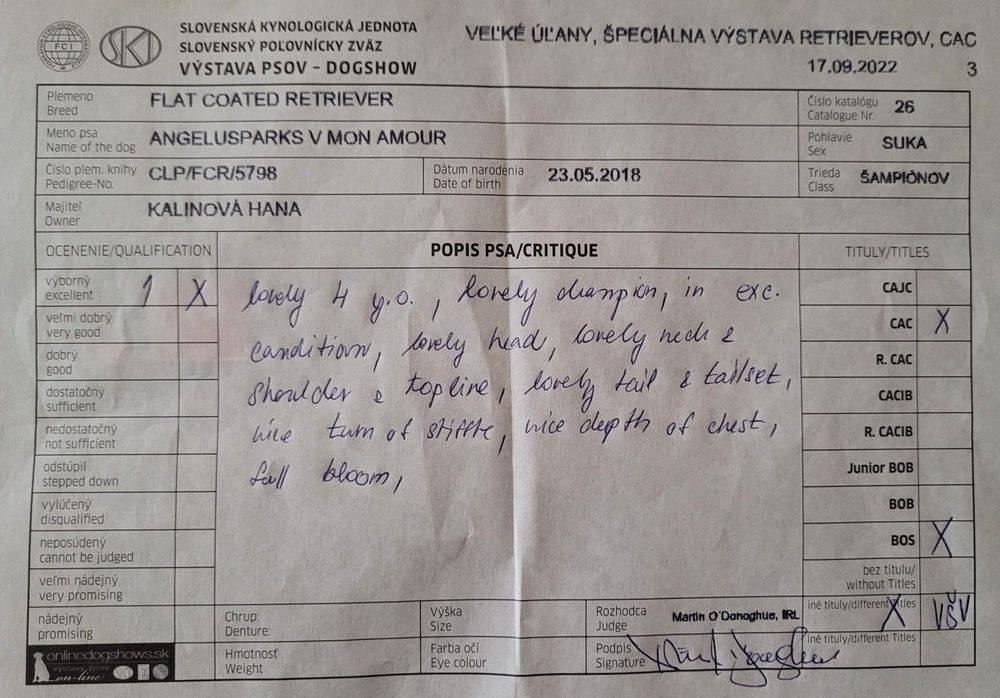 FCI
SKJ
SLOVENSKÁ KYNOLOGICKÁ JEDNOTA
SLOVENSKÝ POĽOVNÍCKY ZVÄZ
VÝSTAVA PSOV – DOGSHOW
VEĽKÉ ÚĽANY, ŠPECIÁLNA VÝSTAVA RETRIEVEROV, CAC
17.09.2022 3
Plemeno
Breed
FLAT COATED RETRIEVER
Číslo katalógu
Catalogue Nr.
26
Meno psa
Name of the dog
ANGELUSPARKS V MON AMOUR
Pohlavie
Sex
SUKA
Číslo plem. knihy
Pedigree-No.
CLP/FCR/5798
Dátum narodenia
Date of birth
23.05.2018
Trieda
Class
ŠAMPIÓNOV
Majiteľ
Owner
KALINOVÁ HANA
OCENENIE/QUALIFICATION
POPIS PSA/CRITIQUE
TITULY/TITLES
výborný
excellent
1 X
veľmi dobrý
very good
dobrý
good
dostatočný
sufficient
nedostatočný
not sufficient
odstúpil
stepped down
vylúčený
disqualified
neposúdený
cannot be judged
veľmi nádejný
very promising
nádejný
promising
lovely 4 y.o., lovely champion, in exc.
condition, lovely head, lovely neck &
shoulder & topline, lovely tail & tailset,
nice turn of stiffle, nice depth of chest,
full bloom,
CAJC
CAC X
R. CAC
CACIB
R. CACIB
Junior BOB
BOB
BOS X
bez titulu/
without Titles
iné tituly/different Titles X VŠV
iné tituly/different Titles
Chrup:
Denture:
Výška
Size
Rozhodca
Judge
Martin O'Donoghue, IRL
Hmotnosť
Weight
Farba očí
Eye colour
Podpis
Signature
onlinedogshows.sk
výstavy psov
on-line